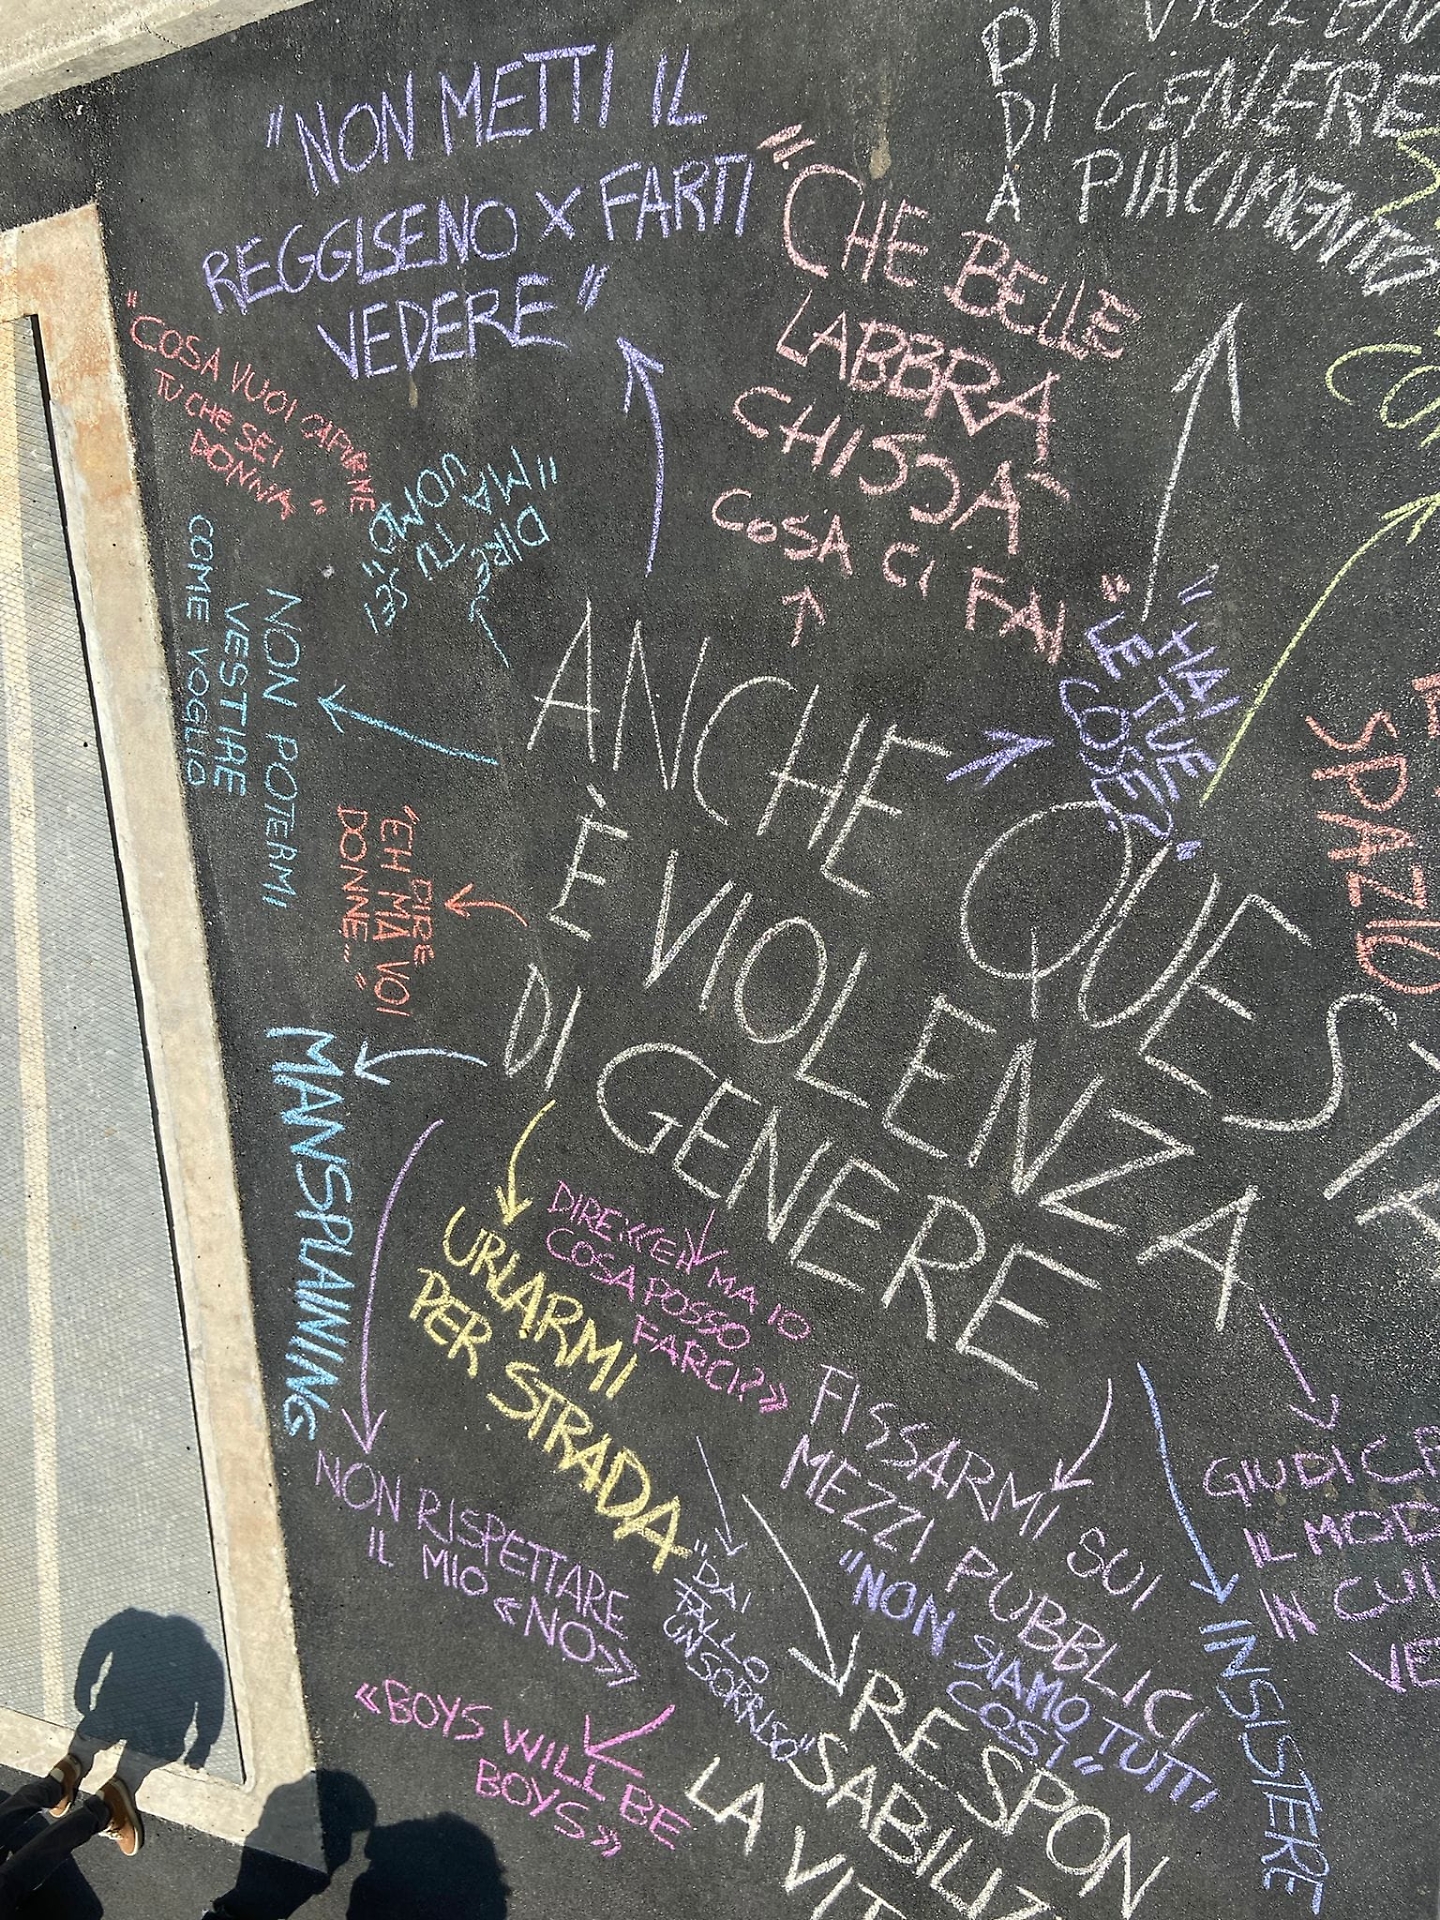 DI
DI GENERE
A PIACIMENTO
"NON METTI IL
REGGISENO X FARTI
VEDERE"
"CHE BELLE
LABBRA
CHISSÀ
COSA CI FAI
"COSA VUOI CAPIRNE
TU CHE SEI
DONNA"
DIRE
"MA TU
SEI
UOMO"
NON POTERMI
VESTIRE
COME VOGLIO
"HAI
LE TUE
COSE?"
SPAZIO
ANCHE QUESTA
È VIOLENZA
DI GENERE
DIRE
"EH MA VOI
DONNE..."
MANSPLAINING
URLARMI
PER STRADA
DIRE «EH MA IO
COSA POSSO
FARCI?»
FISSARMI SUI
MEZZI PUBBLICI
"NON SIAMO TUTTI
COSÌ"
IL
IN CUI
INSISTERE
NON RISPETTARE
IL MIO «NO»
"DAI
FALLO
UN SORRISO"
«BOYS WILL BE
BOYS»
RESPON
SABILIZ
LA